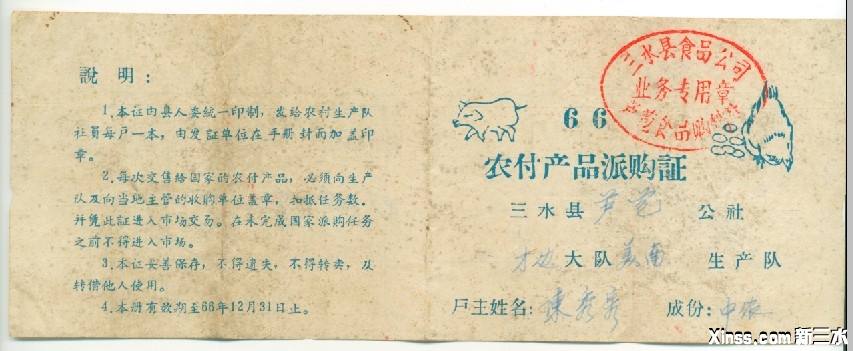 說明：
1.本证由县人委統一印制，发给农村生产队
社員每戸一本，由发証单位在手册封面加盖印
章。
2.每次交售给国家的农付产品，必须向生产
队及向当地主管的收购单位盖章，扣抵任务数．
并凭此証进入市场交易。在未完成国家派购任务
之前不得进入市场。
3.本证妥善保存，不得遺失，不得转卖，及
转借他人使用。
4.本册有效期至66年12月31日止。
三水县食品公司
业务专用章
66
农付产品派购証
三水县 芦苞 公社
大队 生产队
戸主姓名： 成份：中农
Xinss.com新三水